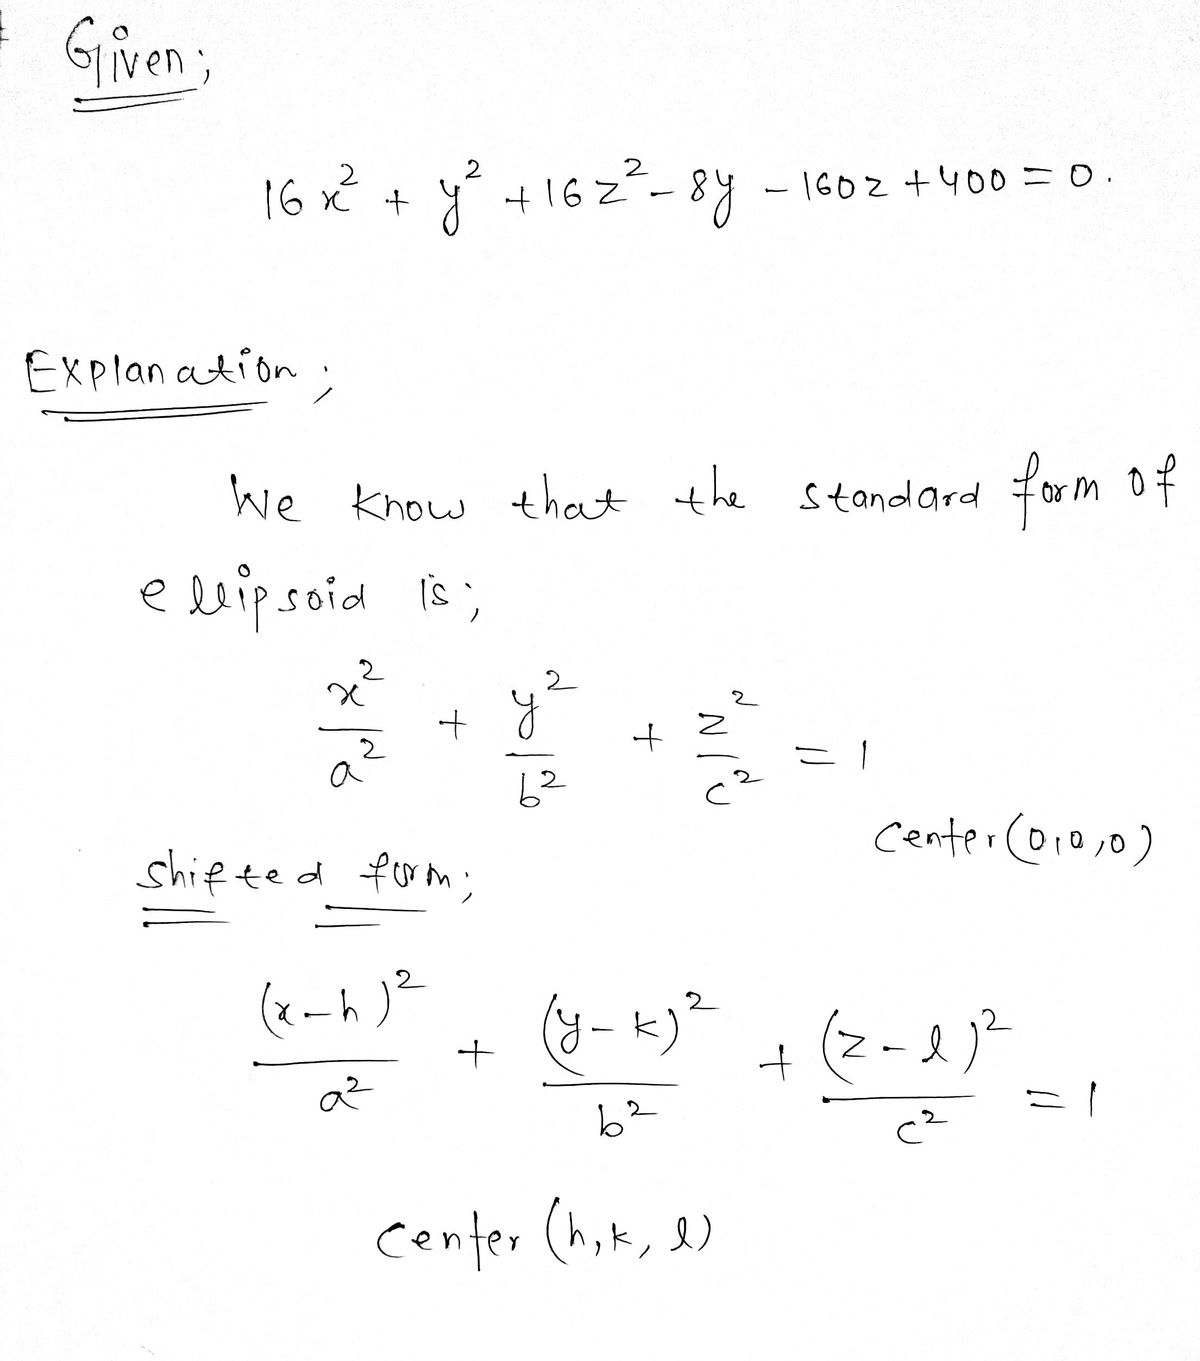 Given;
16x² + y² + 16z² - 8y - 160z + 400 = 0.
Explanation;
We know that the standard form of
ellipsoid is;
x²/a² + y²/b² + z²/c² = 1
Center (0,0,0)
Shifted form;
(x-h)²/a² + (y-k)²/b² + (z-l)²/c² = 1
Center (h,k,l)